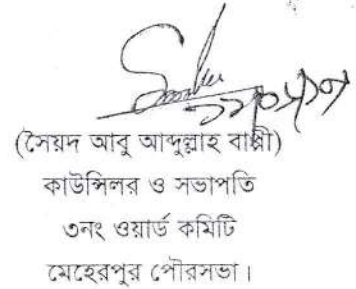 (সৈয়দ আবু আব্দুল্লাহ বাপ্পী)
কাউন্সিলর ও সভাপতি
৩নং ওয়ার্ড কমিটি
মেহেরপুর পৌরসভা।